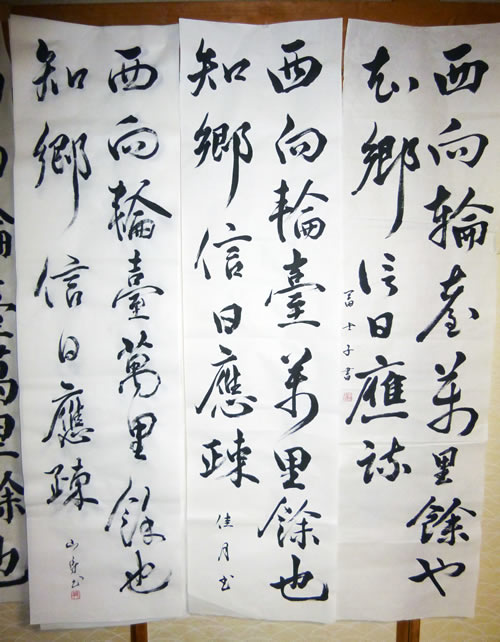 西向輪臺萬里餘也
知鄉信日應疎
冨士子書
西向輪臺萬里餘也
知鄉信日應疎
佳月書
西向輪臺萬里餘也
知鄉信日應疎
向輪臺萬里餘也